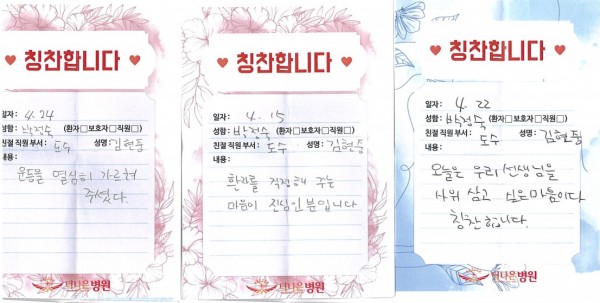 ♥ 칭찬합니다 ♥
일자: 4.24
성함: 박정숙 (환자□보호자□직원□)
친절 직원 부서: 도수 성명: 김현중
내용:
운동을 열심히 가르쳐
주셨다.
더나은병원
♥ 칭찬합니다 ♥
일자: 4.15
성함: 박정숙 (환자□보호자□직원□)
친절 직원 부서: 도수 성명: 김현중
내용:
환자를 걱정해 주는
마음이 진심인 분입니다
더나은병원
♥ 칭찬합니다 ♥
일자: 4.22
성함: 박정숙 (환자□보호자□직원□)
친절 직원 부서: 도수 성명: 김현중
내용:
오늘은 우리 선생님을
사위 삼고 싶은 마음이다
칭찬합니다.
더나은병원